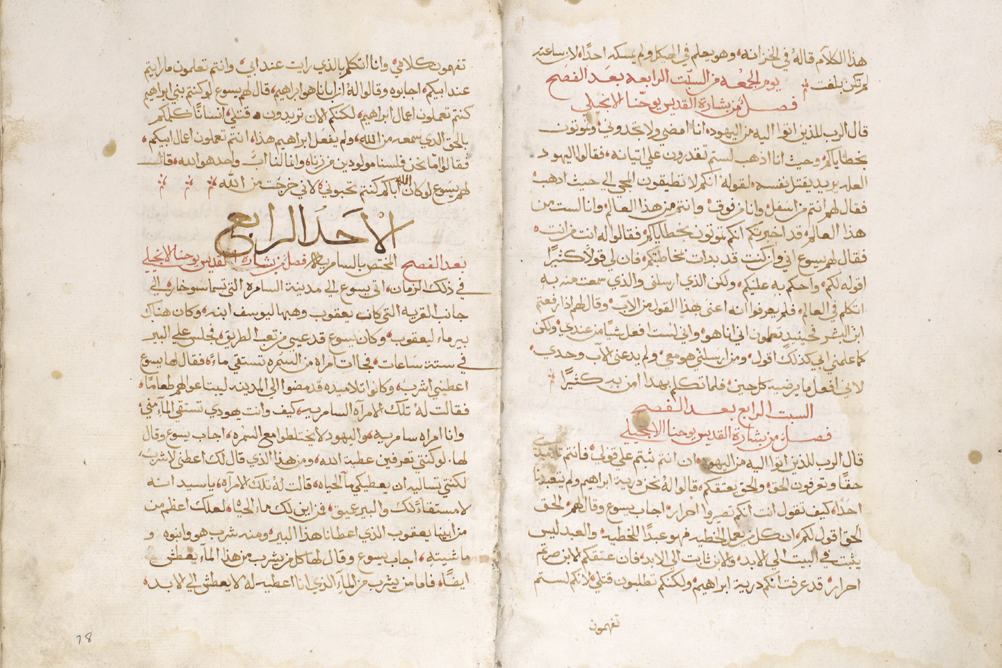 هذا الكلام قاله في الخزانه وهو يعلم في الهيكل ولم يمسكه احدًا لان ساعته
لم تكن بلغت
يوم الجمعه من السبت الرابعه بعد الفصح
فصل من بشارة القديس يوحنا الانجيلي
قال الرب للذين اتوا اليه من اليهود انا امضي ولا تجدوني وتموتون
بخطاياكم وحيث انا اذهب لستم تقدرون علي اتيانه فقالوا اليهود
العله يريد يقتل نفسه لقوله انكم لا تطيقون المجي الي حيث اذهب
فقال لهم انتم من اسفل وانا من فوق وانتم من هذا العالم وانا لست من
هذا العالم قد اخبرتكم انكم تموتون بخطاياكم فقالوا له انت من انت
فقال لهم يسوع اني وان كنت قد بدات بمخاطبتكم فان لي قولا كثيرًا
اقوله لكم واحكم به عليكم ولكن الذي ارسلني والذي سمعت منه به
اتكلم في العالم فلم يعرفوا انه اعني بهذا القول من الاب وقال لهم اذا رفعتم
ابن البشر حينيد تعلمون اني انا هو واني لست افعل شيًا من عندي ولكن
كما علمني ابي كذلك اقول ومن ارسلني هو معي ولم يدعني الاب وحدي
لاني افعل ما يرضيه كل حين فلما تكلم بهدا امن به كثيرًا
السبت الرابع بعد الفصح
فصل من بشارة القديس يوحنا الانجيلي
قال الرب للذين اتوا اليه من اليهود ان انتم ثبتم علي قولي فانتم تلاميذي
حقا وتعرفون الحق والحق يعتقكم قالوا له نحن درية ابراهيم ولم نتعبد
احدًا كيف تقول انت انكم تصيروا احرار اجاب يسوع وقال لهم الحق
الحق اقول لكم ان كل من يعمل الخطيه فهو عبدًا للخطيه والعبد ليس
يثبت في البيت الي الابد والابن ثابت الي الابد فان عتقكم الابن صرتم
احرار قد عرفت انكم درية ابراهيم ولكنكم تطلبون قتلي لانكم لستم
تفهمون
تفهمون كلامي وانا اتكلم بالذي رايت عند ابي وانتم تعلمون ما رايتم
عند ابيكم اجابوه وقالوا له ان ابانا هو ابراهيم قال لهم يسوع لو كنتم بني ابراهيم
كنتم تعملون اعمال ابراهيم لكنكم الان تريدون قتلي انسانًا كلمكم
بالحق الذي سمعه من الله ولم يفعل ابراهيم هذا انتم تعملون اعمال ابيكم
فقالوا اما نحن فلسنا مولودين من زناه وانا لنا اب واحد هو الله قال
لهم يسوع لو كان الله اباكم كنتم تحبوني لاني خرجت من الله
الاحد الرابع
بعد الفصح المختص بالسامريه فصل من بشارة القديس يوحنا الانجيلي
في ذلك الزمان اتي يسوع الي مدينة السامره التي تسما سوخار الي
جانب القريه التي كانب يعقوب وهبها ليوسف ابنه وكان هناك
بير ماء ليعقوب وكان يسوع قد عيي من تعب الطريق فجلس علي البير
في ستة ساعات فجات امراه من السمره تستقي ماء فقال لها يسوع
اعطيني اشرب وكانوا تلاميذه قد مضوا الي المدينه ليبتاعوا لهم طعامًا
فقالت له تلك الامرآه السامريه كيف وانت يهودي تستقي الما مني
وانا امراه سامريه واليهود لا يختلطوا مع السمره اجاب يسوع وقال
لها لو كنتي تعرفين عطية الله ومن هذا الذي قال لك اعطني لاشرب
لكنتي تساليه ان يعطيكي ما الحياه قالت له تلك الامراه يا سيد انه
لا مستقا لك والبير عميق فمن اين لك ما الحياه لعلك اعظم من
من ابينا يعقوب الذي اعطانا هذا البير ومنه شرب هو وابنوه و
ماشيته اجاب يسوع وقال لها كل من يشرب من هذا الماء يعطش
ايضًا فاما من يشرب من الماء الذي انا اعطيه له لا يعطش الي الابد
78